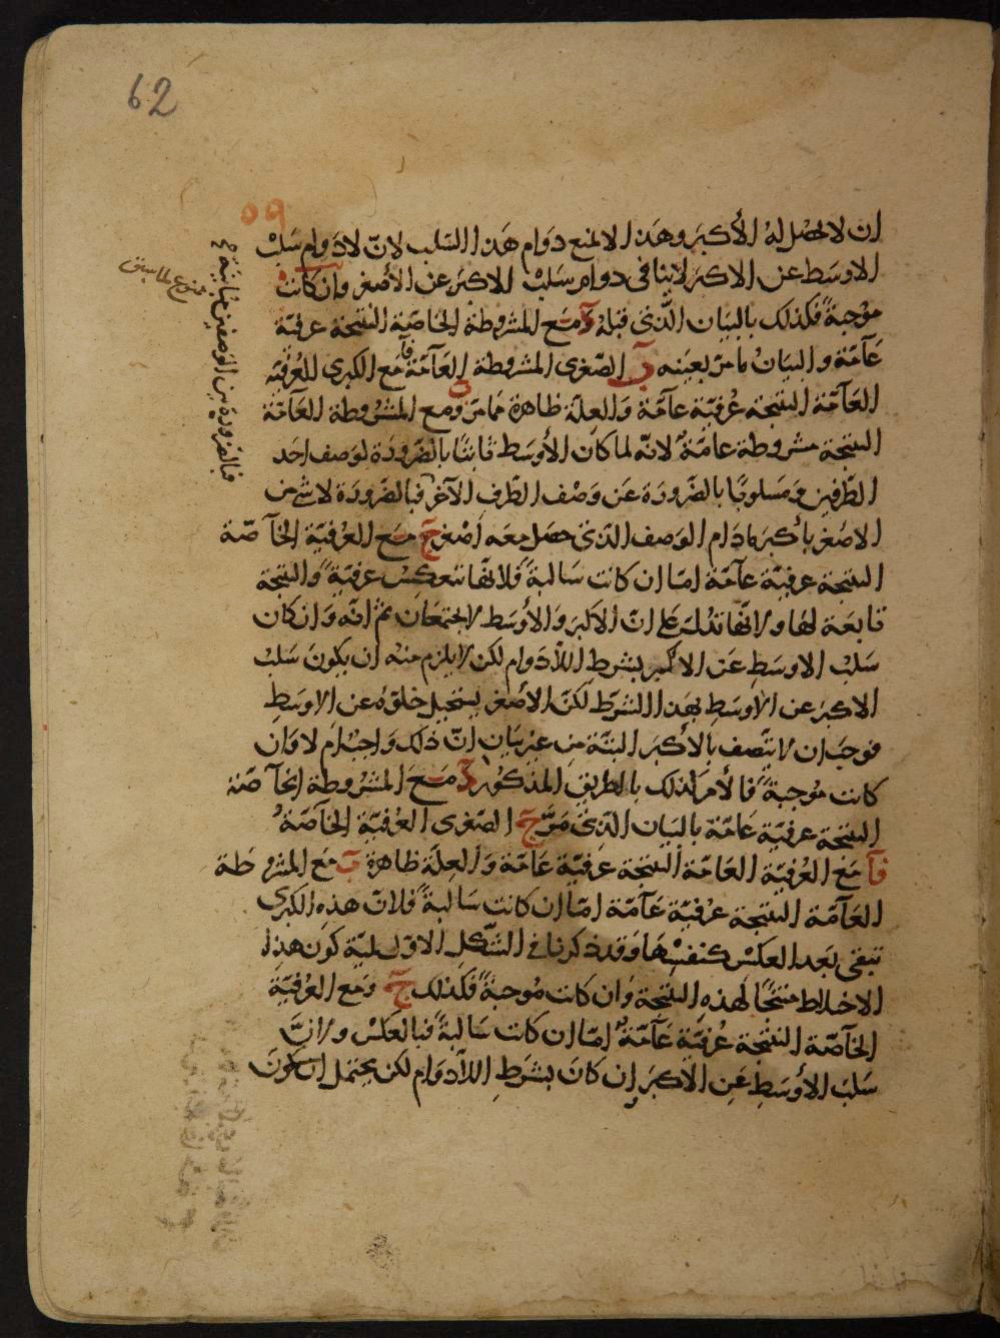 62
٥٩
ان لا يحصل له الأكبر وهذا لا يمنع دوام هذا السلب لانّ لا دوام سلب
الاوسط عن الاكبر لا ينافى دوام سلب الاكبر عن الأصغر وان كانت
موجبةً فكذلك بالبيان الذى قبله وآ مع المشروطة الخاصّية النتيجة عرفيّة
عآمّة والبيان ما مرّ بعينه بَ الصّغرى المشروطة العَآمّة فآ مع الكبرى العُرفيّة
العَآمّة النتيجة عُرفيّة عآمّة وَالعِلّة ظاهرة ممّا مرّ ومع المشروطة العَآمّة
النتيجة مشروطة عامّةٌ لانّه لما كان الأوسَط ثابتًا بالضّرورَة لوصف احَد
الطّرفين وَمَسلوبًا بالضّرورَة عَن وَصْف الطّرف الآخر فبالضّرورَة لا شئ من
الاصْغر بأكبر مادَام الوَصف الذى حصَل معه اصْغر جَ مَع العُرفيّة الخآصّة
النتيجة عرفيّة عآمّة امّا ان كانت سَالبةً فلانّها تنعكس عرفيّةً والنتيجة
تابعَة لها ولانّها تدلّ على انّ الاكبر وَالأوسَط لا يجتمعَان ثم انّه وَان كان
سَلب الاوسَطِ عَن الاكبر بشرط اللّادَوام لكن لا يلزم منه ان يكونَ سَلب
الاكبر عن الأوسَطِ بهَذا الشرط لكنّ الأصْغر يستحيل خلوّه عن الاوسَطِ
فوجَب ان لا يتّصف بالأكبر البتّة من غير بَيان انّ ذلك وَاجبٌ ام لا وَان
كانت مُوجبةً فالأمر كذلك بالطريق المذكور دَ مَع المشروطة الخآصّة
النتيجة عرفيّة عَامّة بالبيان الّذى مَرّ جَ الصّغرى العُرفيّة الخآصّةُ
فآ مَع العُرفيّة العَامّة النتيجة عرفيّة عَامّة وَالعِلّة ظاهرة بَ مَع المشروطة
العَآمّة النتيجة عرْفيّة عَآمّة امّا ان كانت سَالبةً فلانّ هذه الكبرى
تبقى بَعد العكس كنفسِهَا وَقد ذكرنا فى الشّكل الاوّل لميّة كون هذا
الاختلاط منتجًا لهذه النتيجة وَان كانت مُوجبةً فكذلك جَ وَمَع العُرفيّة
الخآصّة النتيجة عُرفيّة عَآمّةٌ امّا ان كانت سَالبةً فبالعَكس ولانّ
سَلبَ الأوسَطِ عَن الأكبر إن كانَ بشرَطِ اللّادَوَام لكن يحتمل ان يكونَ
فبالضرورة بين الوصفين مباينة